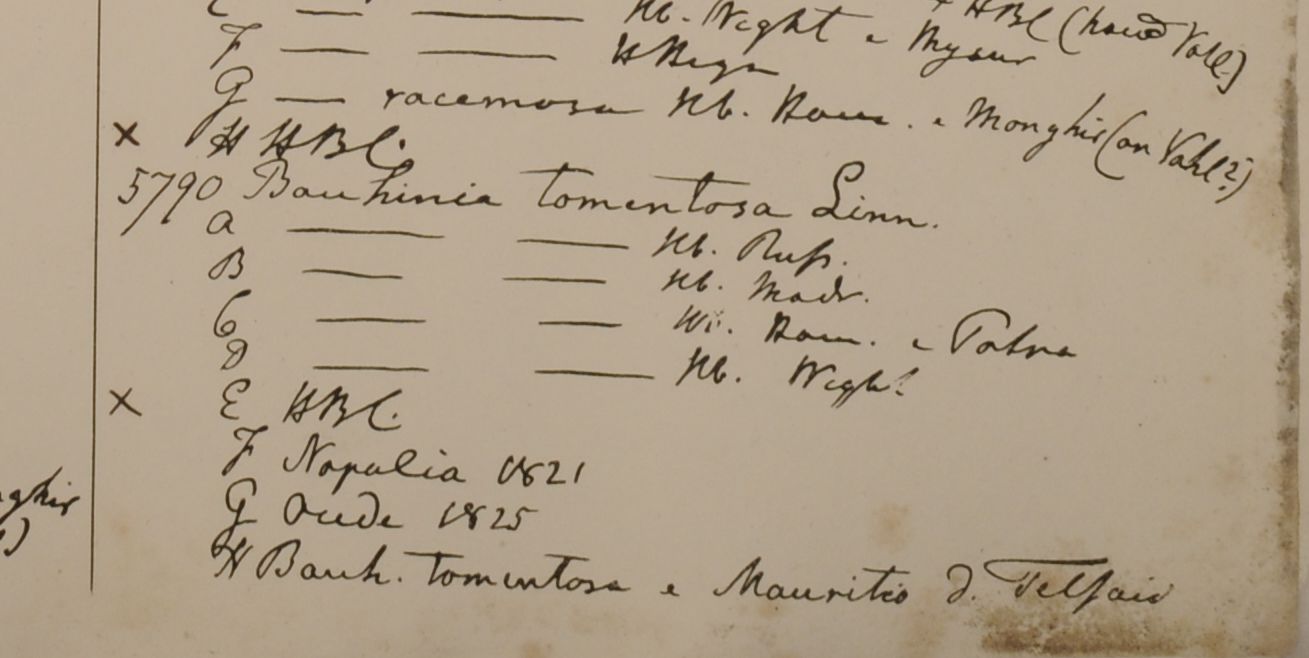 HBC (haud Vahl)
F — — Hb. Wight e Mysur
HBegn
G — racemosa Hb. Ham. e Monghir (an Vahl?)
× H HBC.
5790 Bauhinia tomentosa Linn.
a — — Hb. Russ.
B — — Hb. Madr.
C — — Hb. Ham. e Patna
D — — Hb. Wight
× E HBC.
F Napalia 1821
G Oude 1825
ghir
H Bauh. tomentosa e Mauritio D. Telfair